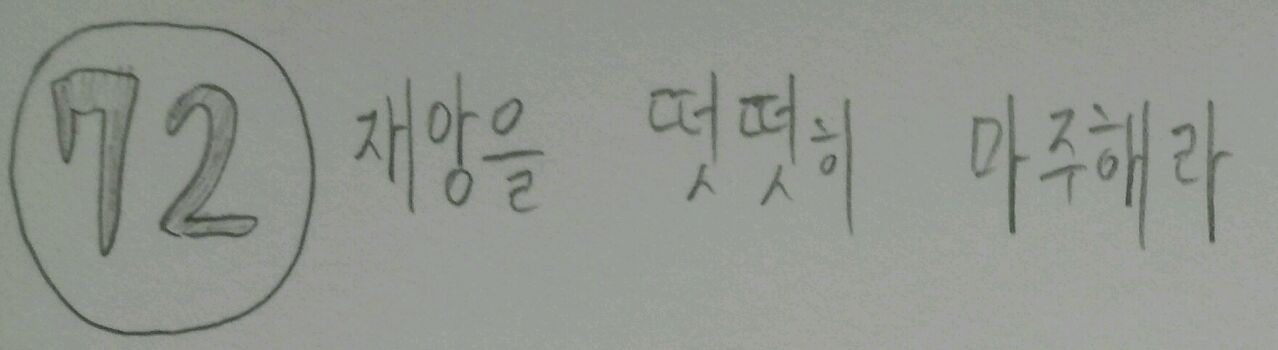 72 재앙을 떳떳히 마주해라